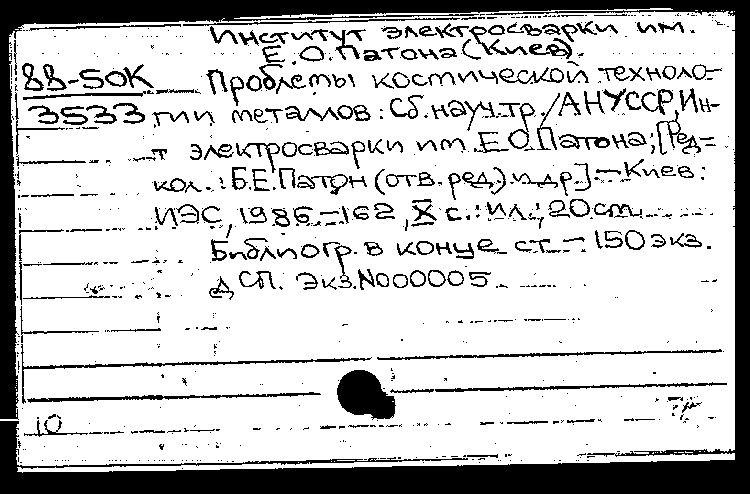 Институт электросварки им.
Е. О. Патона (Киев).
88-50К Проблемы космической техноло-
3533 гии металлов: Сб. науч. тр. / АН УССР, Ин-
т электросварки им. Е. О. Патона; [Ред-
кол.: Б. Е. Патон (отв. ред.) и др.] — Киев:
ИЭС, 1986. — 162, X с.: ил.; 20 cm.
Библиогр. в конце ст. — 150 экз.
ДСП. Экз. N000005
10